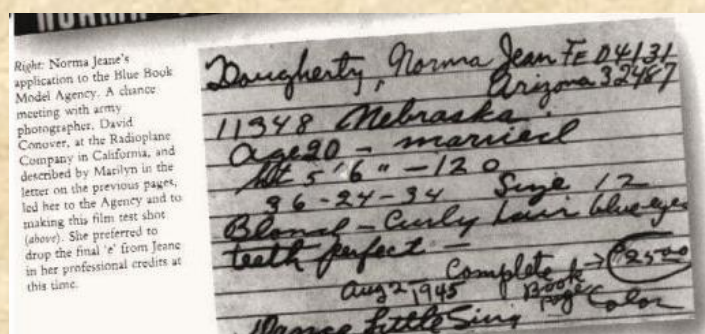 NORMA
Right: Norma Jeane's
application to the Blue Book
Model Agency. A chance
meeting with army
photographer, David
Conover, at the Radioplane
Company in California, and
described by Marilyn in the
letter on the previous pages,
led her to the Agency and to
making this film test shot
(above). She preferred to
drop the final 'e' from Jeane
in her professional credits at
this time.
Dougherty, Norma Jean FE 04131
Arizona 32487
11348 Nebraska.
age 20 – married
Ht 5'6" – 120
36-24-34 Size 12
Blond – Curly hair blue eyes
teeth perfect –
Complete → $25.00
Aug 2, 1945 Book page Color
Dance Little Sing